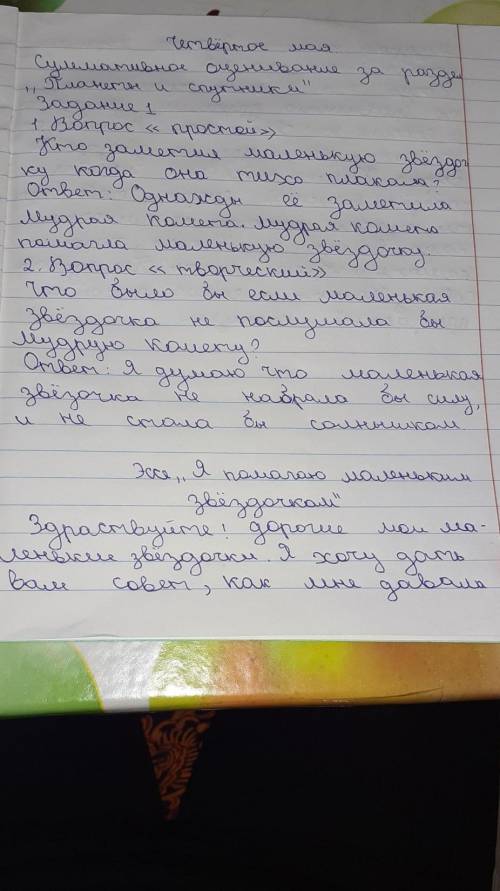 Четвёртое мая
Суммативное оценивание за разде
„Планеты и спутники"
Задание 1
1. Вопрос «простой»
Кто заметил маленькую звёздоч
ку когда она тихо плакала?
Ответ: Однажды её заметила
мудрая комета. мудрая комета
помагла маленькую звёздочку.
2. Вопрос «творческий»
Что было бы если маленькая
звёздочка не послушала бы
мудрую комету?
Ответ: Я думаю что маленькая
звёзочка не набрала бы силу,
и не стала бы солнышком
Эссе „Я помогаю маленьким
звёздочкам"
Здраствуйте! дорогие мои ма-
ленькие звёздочки. Я хочу дать
вам совет, как мне давала